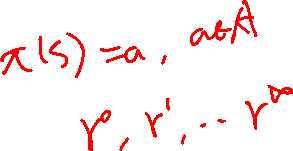 π(s) = a, a∈A
r⁰, r¹, .. r^∞